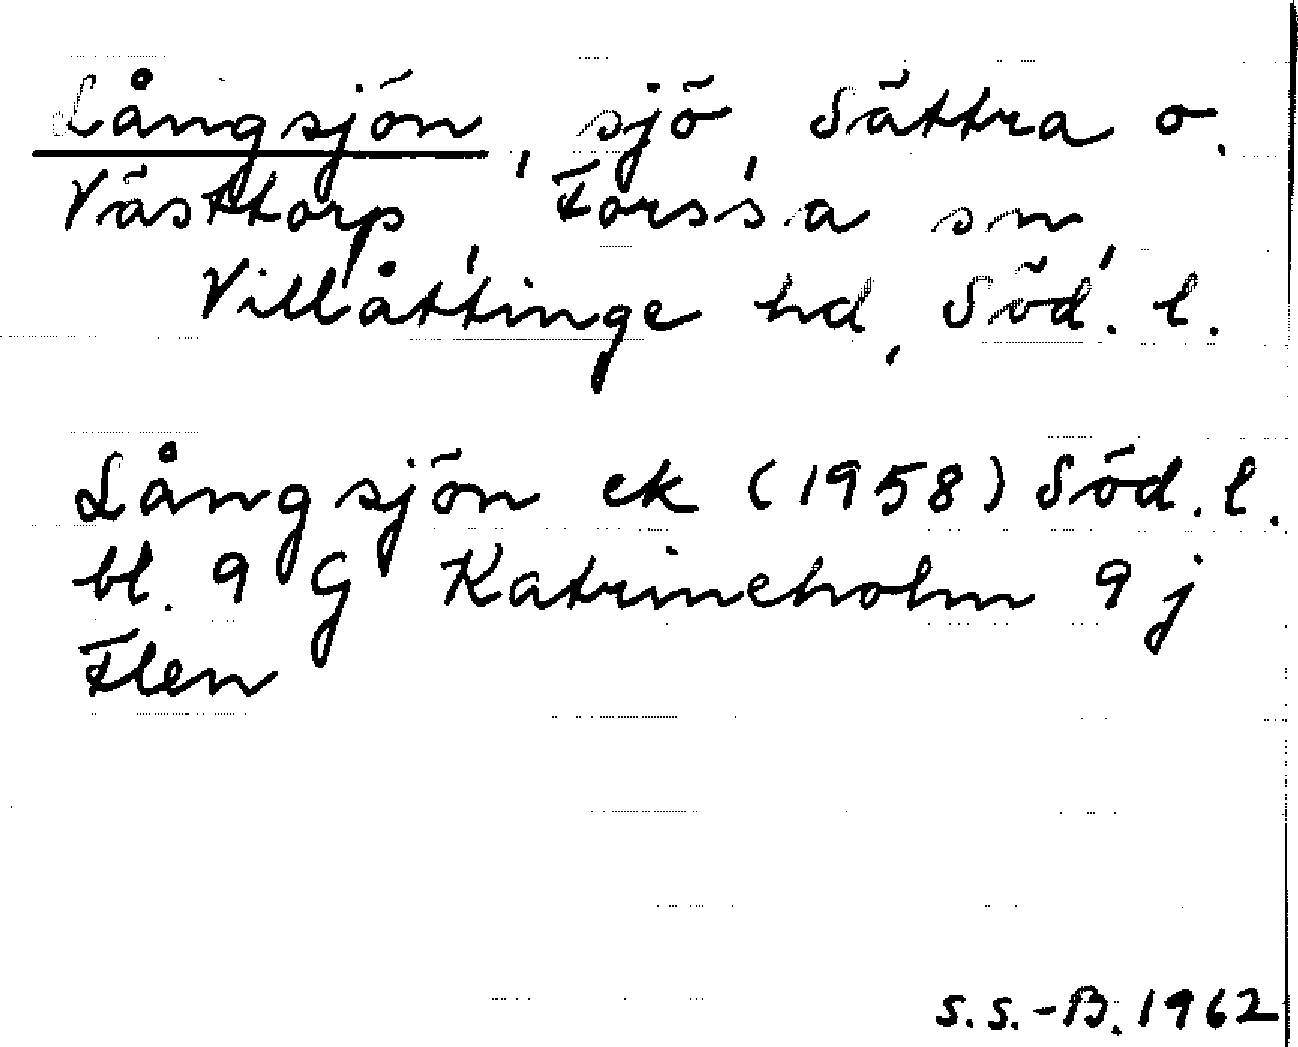 Långsjön, sjö, Sättra o.
Västtorp, Forssa sn,
Villåttinge hd, Söd. l.
Långsjön ek (1958) Söd. l.
bl. 9 G Katrineholm 9 j
Flen
S.S.-B. 1962